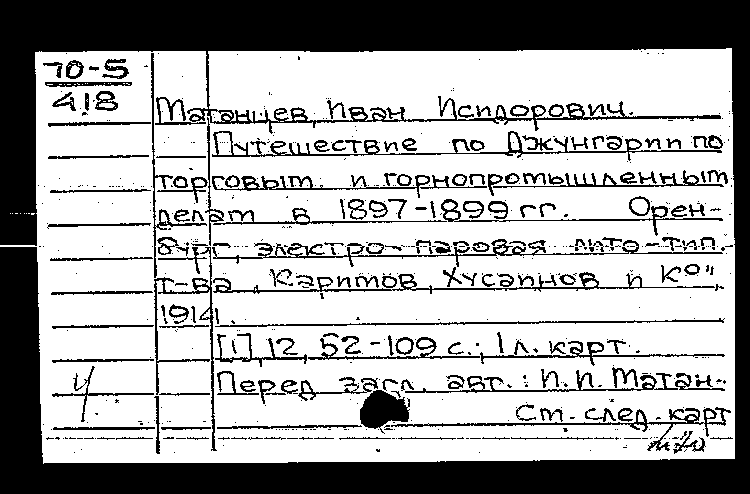 70-5
418
Матанцев, Иван Исидорович.
Путешествие по Джунгарии по
торговым и горнопромышленным
делам в 1897-1899 гг. Орен-
бург, электро-паровая лито-тип.
т-ва "Каримов, Хусаинов и К°",
1914.
[1], 12, 52-109 с.; 1 л. карт.
Перед загл. авт.: И.И. Матан-
Ч
См. след. карт